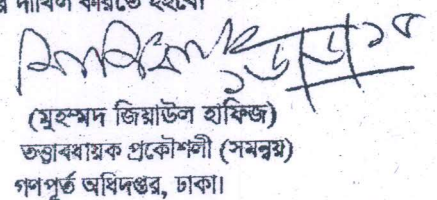 দাখিল করিতে হইবে।
(মুহম্মদ জিয়াউল হাফিজ)
তত্ত্বাবধায়ক প্রকৌশলী (সমন্বয়)
গণপূর্ত অধিদপ্তর, ঢাকা।